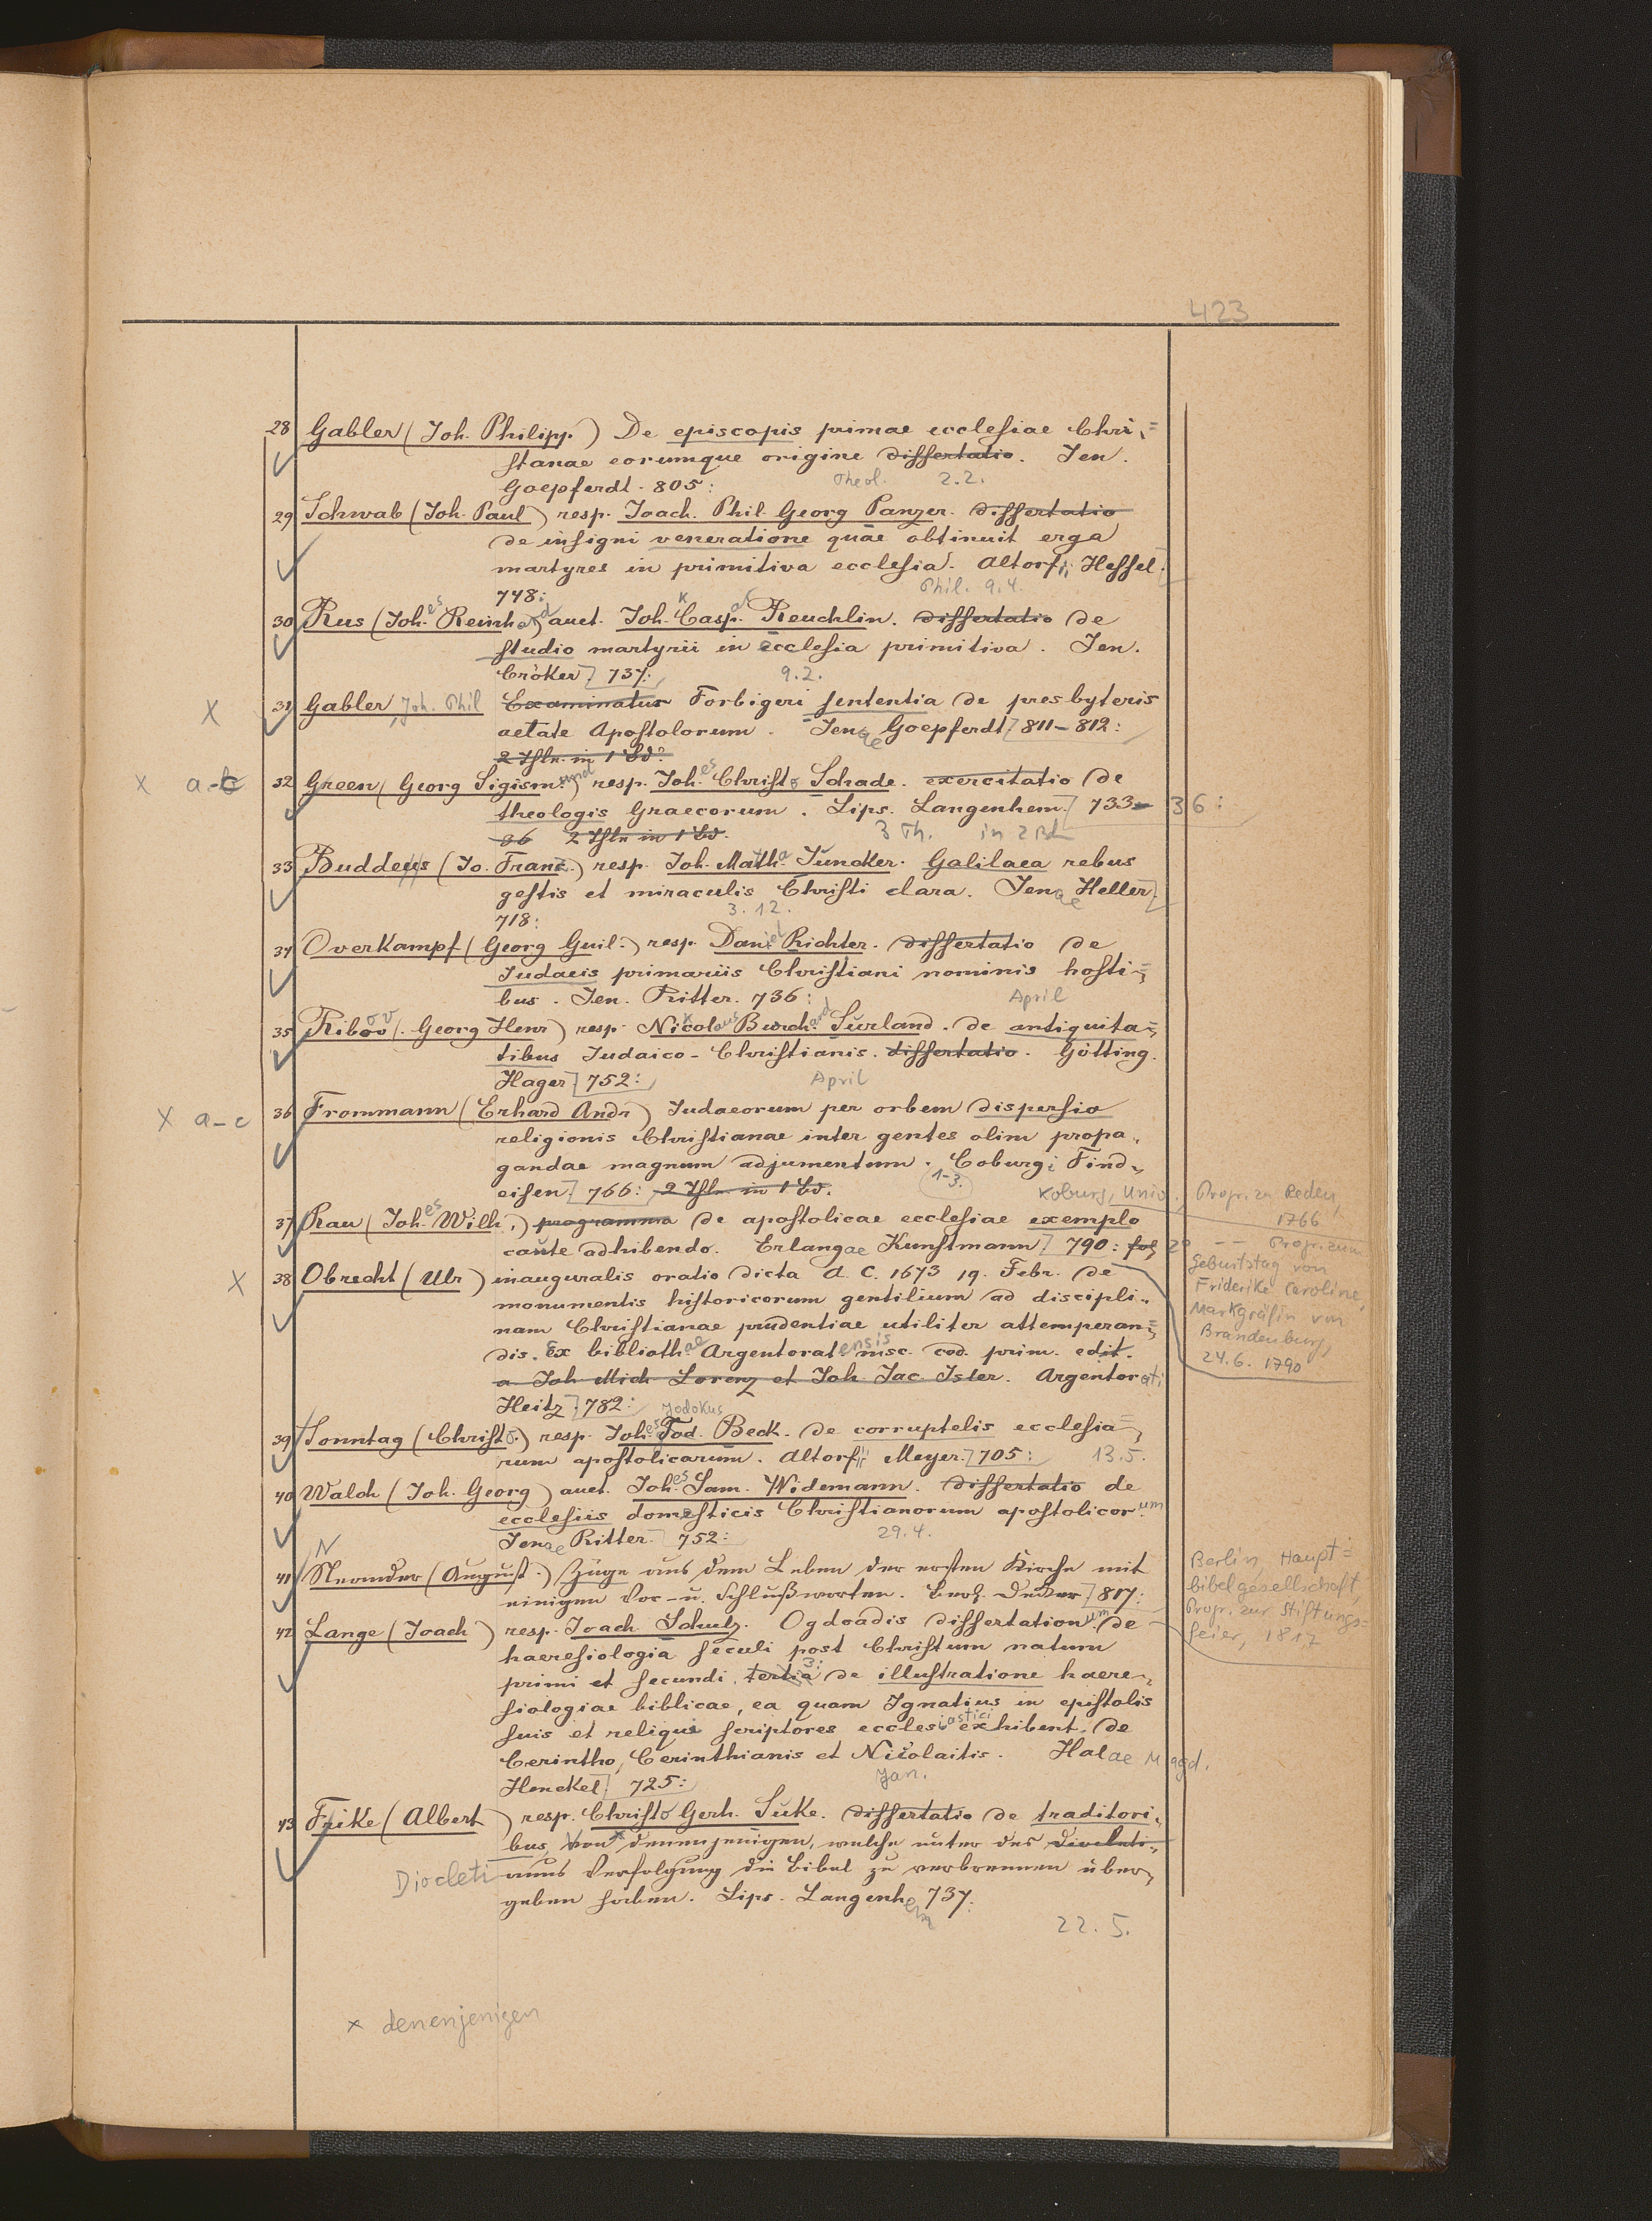 423
28 Gabler (Joh. Philipp.) De episcopis primae ecclesiae Chri=
stanae eorumque origine dissertatio. Jen.
Goepferdt. 805: Theol. 2.2.
29 Schwab (Joh. Paul) resp. Joach. Phil. Georg Panzer. dissertatio
de insigni veneratione quae obtinuit erga
martyres in primitiva ecclesia. Altorfii Hessel.
748: Phil. 9.4.
30 Rus (Joh.es Reinhard) auct. Joh. Kaspar Reuchlin. dissertatio de
studio martyrii in ecclesia primitiva. Jen.
Cröker 737: 9.2.
X 31 Gabler, Joh. Phil Examinatur Forbigeri sententia de presbyteris
aetate Apostolorum. Jenae Goepferdt 811-812:
2 Thle. in 1 Bd.
X a-c 32 Green (Georg Sigismund) resp. Joh.es Christo Schade. exercitatio de
theologis Graecorum. Lips. Langenhem. 733- 36:
36 2 Thle in 1 Bd. 3 Th. in 2 Bd
33 Buddeus (Jo. Franc.) resp. Joh. Matth. Juncker. Galilaea rebus
gestis et miraculis Christi clara. Jenae Heller
718: 3.12.
34 Overkampf (Georg Guil.) resp. Daniel Richter. dissertatio de
Judaeis primariis Christiani nominis hosti=
bus. Jen. Ritter. 736: April
35 Ribov (Georg Henr) resp. Nicolaus Burchard Surland. de antiquita=
tibus Judaico-Christianis. dissertatio. Götting.
Hager 752: April
X a-c 36 Frommann (Erhard Andr) Judaeorum per orbem dispersio
religionis Christianae inter gentes olim propa-
gandae magnum adjumentum. Coburgi Find-
eisen 766: 2 Thle. in 1 Bd. 1-3. Koburg, Univ., Progr. zu Reden, 1766
37 Rau (Joh.es Wilh.) programma de apostolicae ecclesiae exemplo
caute adhibendo. Erlangae Kunstmann 790: fol 2° -- Progr. zum
Geburtstag von
Friderike Caroline,
Markgräfin von
Brandenburg,
24.6.1790
X 38 Obrecht (Ulr) inauguralis oratio dicta A. C. 1673 19. Febr. de
monumentis historicorum gentilium ad discipli-
nam Christianae prudentiae utiliter attemperan=
dis. Ex bibliothae Argentoratensis msc. cod. prim. edit.
a Joh Mich Lorenz et Joh. Jac. Isler. Argentorati
Heitz 782:
39 Sonntag (Christo.) resp. Joh.es Jod. Jodokus Beck. de corruptelis ecclesia=
rum apostolicarum. Altorfii Meyer. 705: 13.5.
40 Walch (Joh. Georg) auct. Joh.es Sam. Widemann. dissertatio de
ecclesiis domesticis Christianorum apostolicorum
Jenae Ritter 752: 29.4.
41 Neander (August.) Züge aus dem Leben der ersten Kirche mit
einigen Vor- u. Schlußworten. Berl. Decker 817:
Berlin, Haupt=
bibelgesellschaft,
Progr. zur Stiftungs=
feier, 1817
42 Lange (Joach) resp. Joach Schulz. Ogdoadis dissertationum de
haeresiologia seculi post Christum natum
primi et secundi. tertia 3: de illustratione haere-
siologiae biblicae, ea quam Ignatius in epistolis
suis et reliqui scriptores ecclesiastici exhibent, de
Cerintho, Cerinthianis et Nicolaitis. Halae Magd.
Henckel 725: Jan.
43 Frike (Albert) resp. Christo Gerh. Suke. dissertatio de traditori-
bus, von x denenjenigen, welche unter des Diocleti-
Diocleti anus Verfolgung die Bibel zu verbrennen über-
geben haben. Lips. Langenhem 737:
22.5.
x denenjenigen